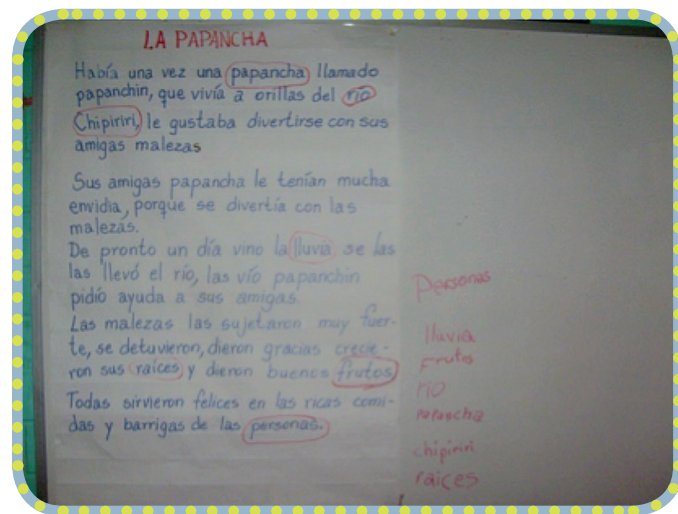 LA PAPANCHA
Había una vez una papancha llamado
papanchin, que vivía a orillas del río
Chipiriri, le gustaba divertirse con sus
amigas malezas
Sus amigas papancha le tenían mucha
envidia, porque se divertía con las
malezas.
De pronto un día vino la lluvia se las
las llevó el río, las vío papanchin
pidío ayuda a sus amigas.
Las malezas las sujetaron muy fuer-
te, se detuvieron, dieron gracias crecie-
ron sus raíces y dieron buenos frutos
Todas sirvieron felices en las ricas comi-
das y barrigas de las personas.
Personas
lluvia
frutos
río
papancha
chipiriri
raices